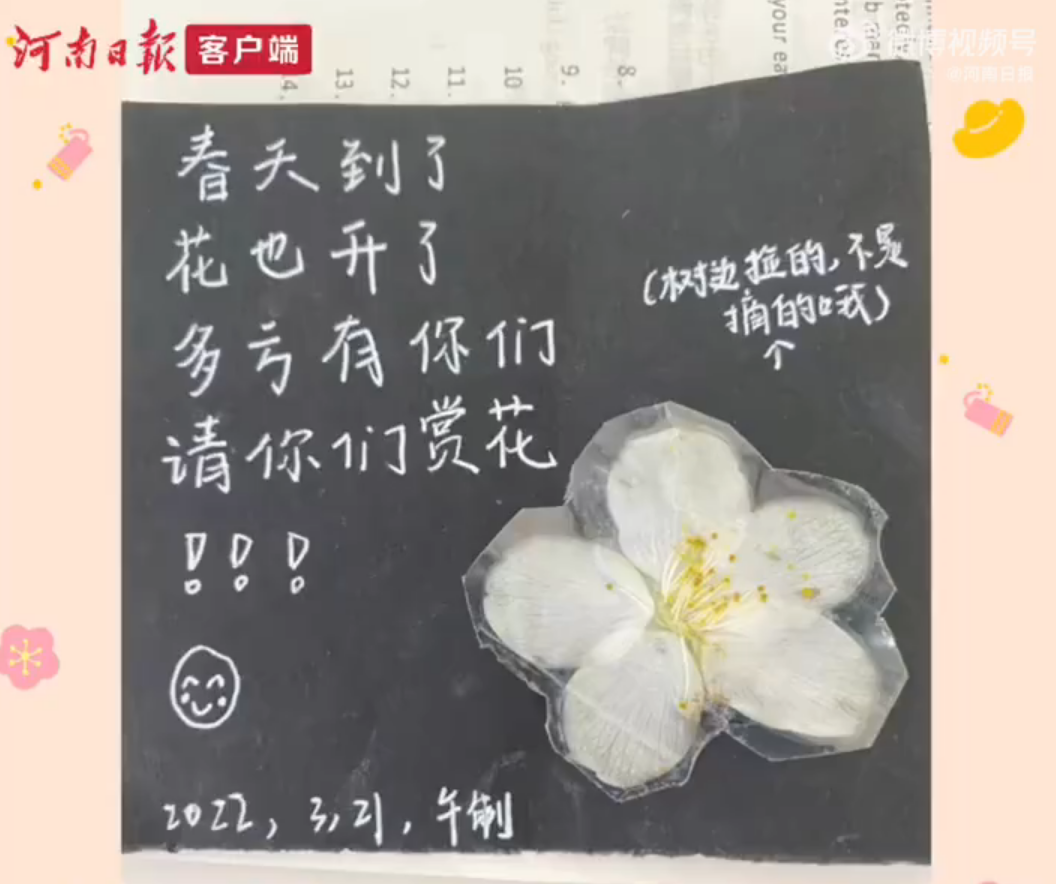 河南日报 客户端
微博视频号
@河南日报
14.
13.
12.
11.
10
9.
8.
your ea
春天到了
花也开了
多亏有你们
请你们赏花
!!!
(树边捡的,不是
摘的哦)
2022,3,21,午制